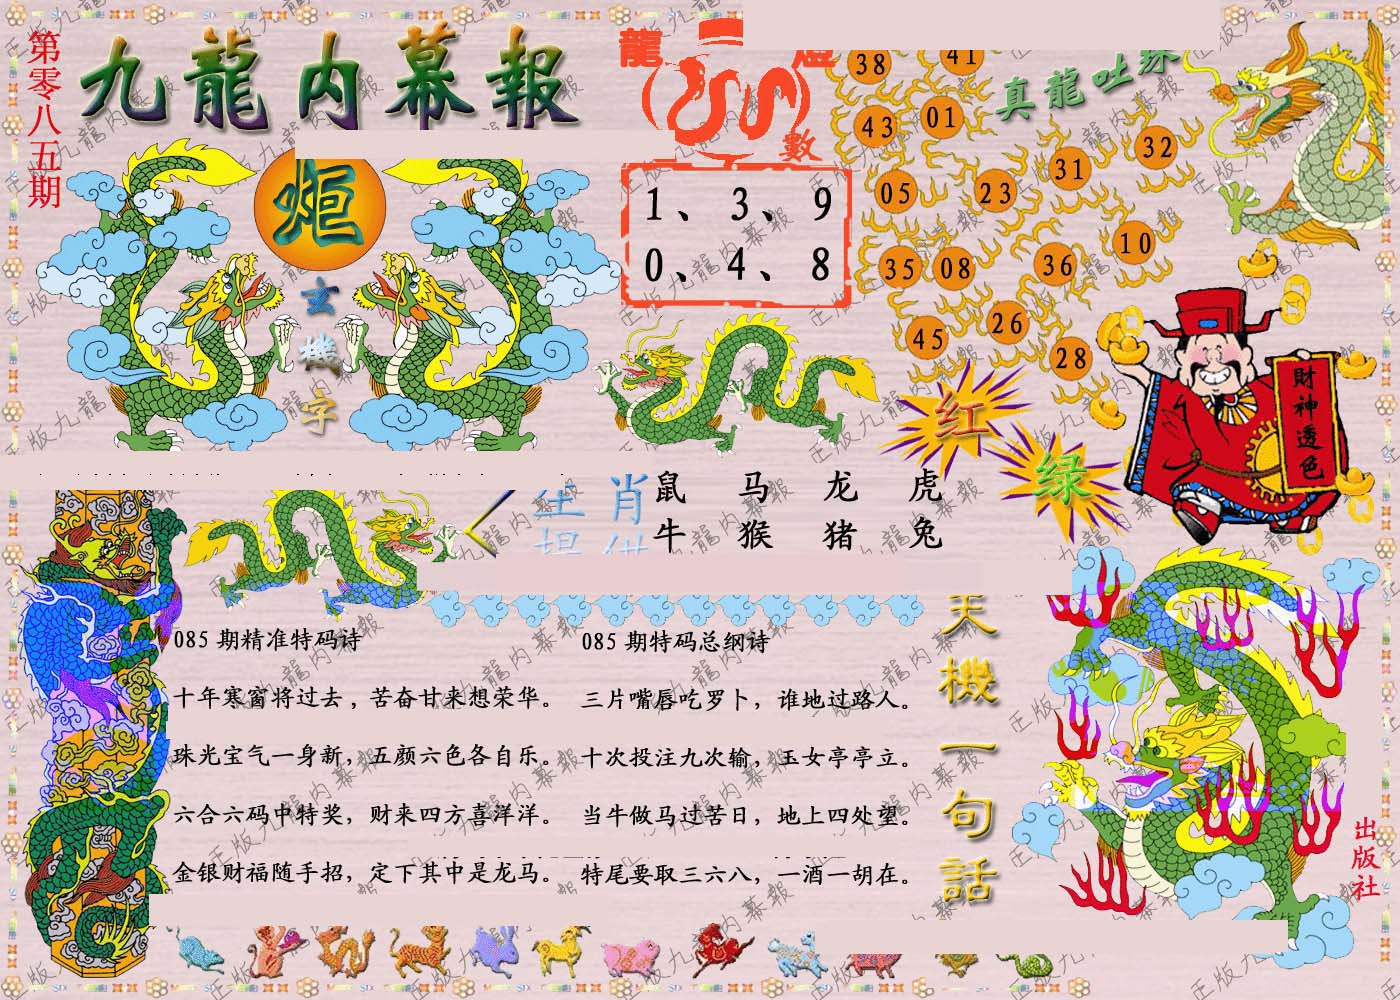 第零八五期
九龍内幕報
炬
玄機字
龍
數
1、3、9
0、4、8
真龍吐珠
38 41
43 01
05 23 31 32
35 08 36 10
45 26 28
红
绿
財神透色
肖
鼠 马 龙 虎
牛 猴 猪 兔
085 期精准特码诗
十年寒窗将过去，苦奋甘来想荣华。
珠光宝气一身新，五颜六色各自乐。
六合六码中特奖，财来四方喜洋洋。
金银财福随手招，定下其中是龙马。
085 期特码总纲诗
三片嘴唇吃罗卜，谁地过路人。
十次投注九次输，玉女亭亭立。
当牛做马过苦日，地上四处望。
特尾要取三六八，一酒一胡在。
天機一句話
出版社
正版九龍内幕報